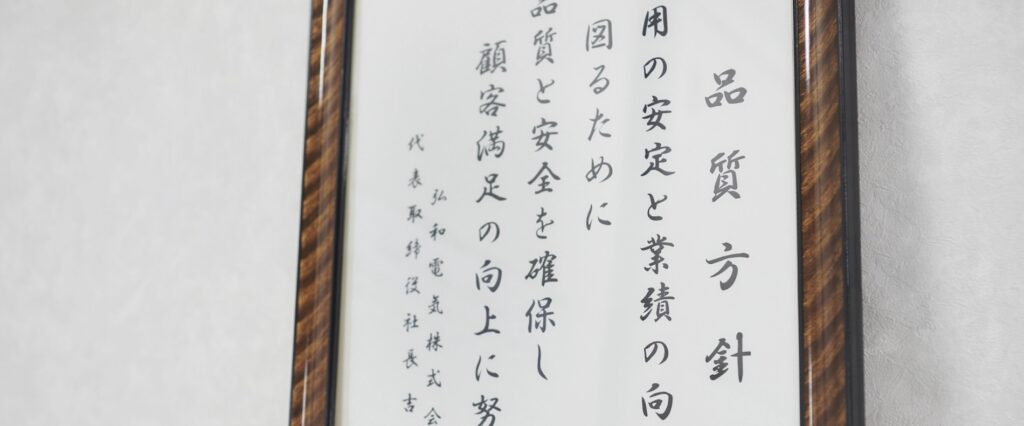 品質方針
用の安定と業績の向
図るために
品質と安全を確保し
顧客満足の向上に努
弘和電気株式会
代表取締役社長吉